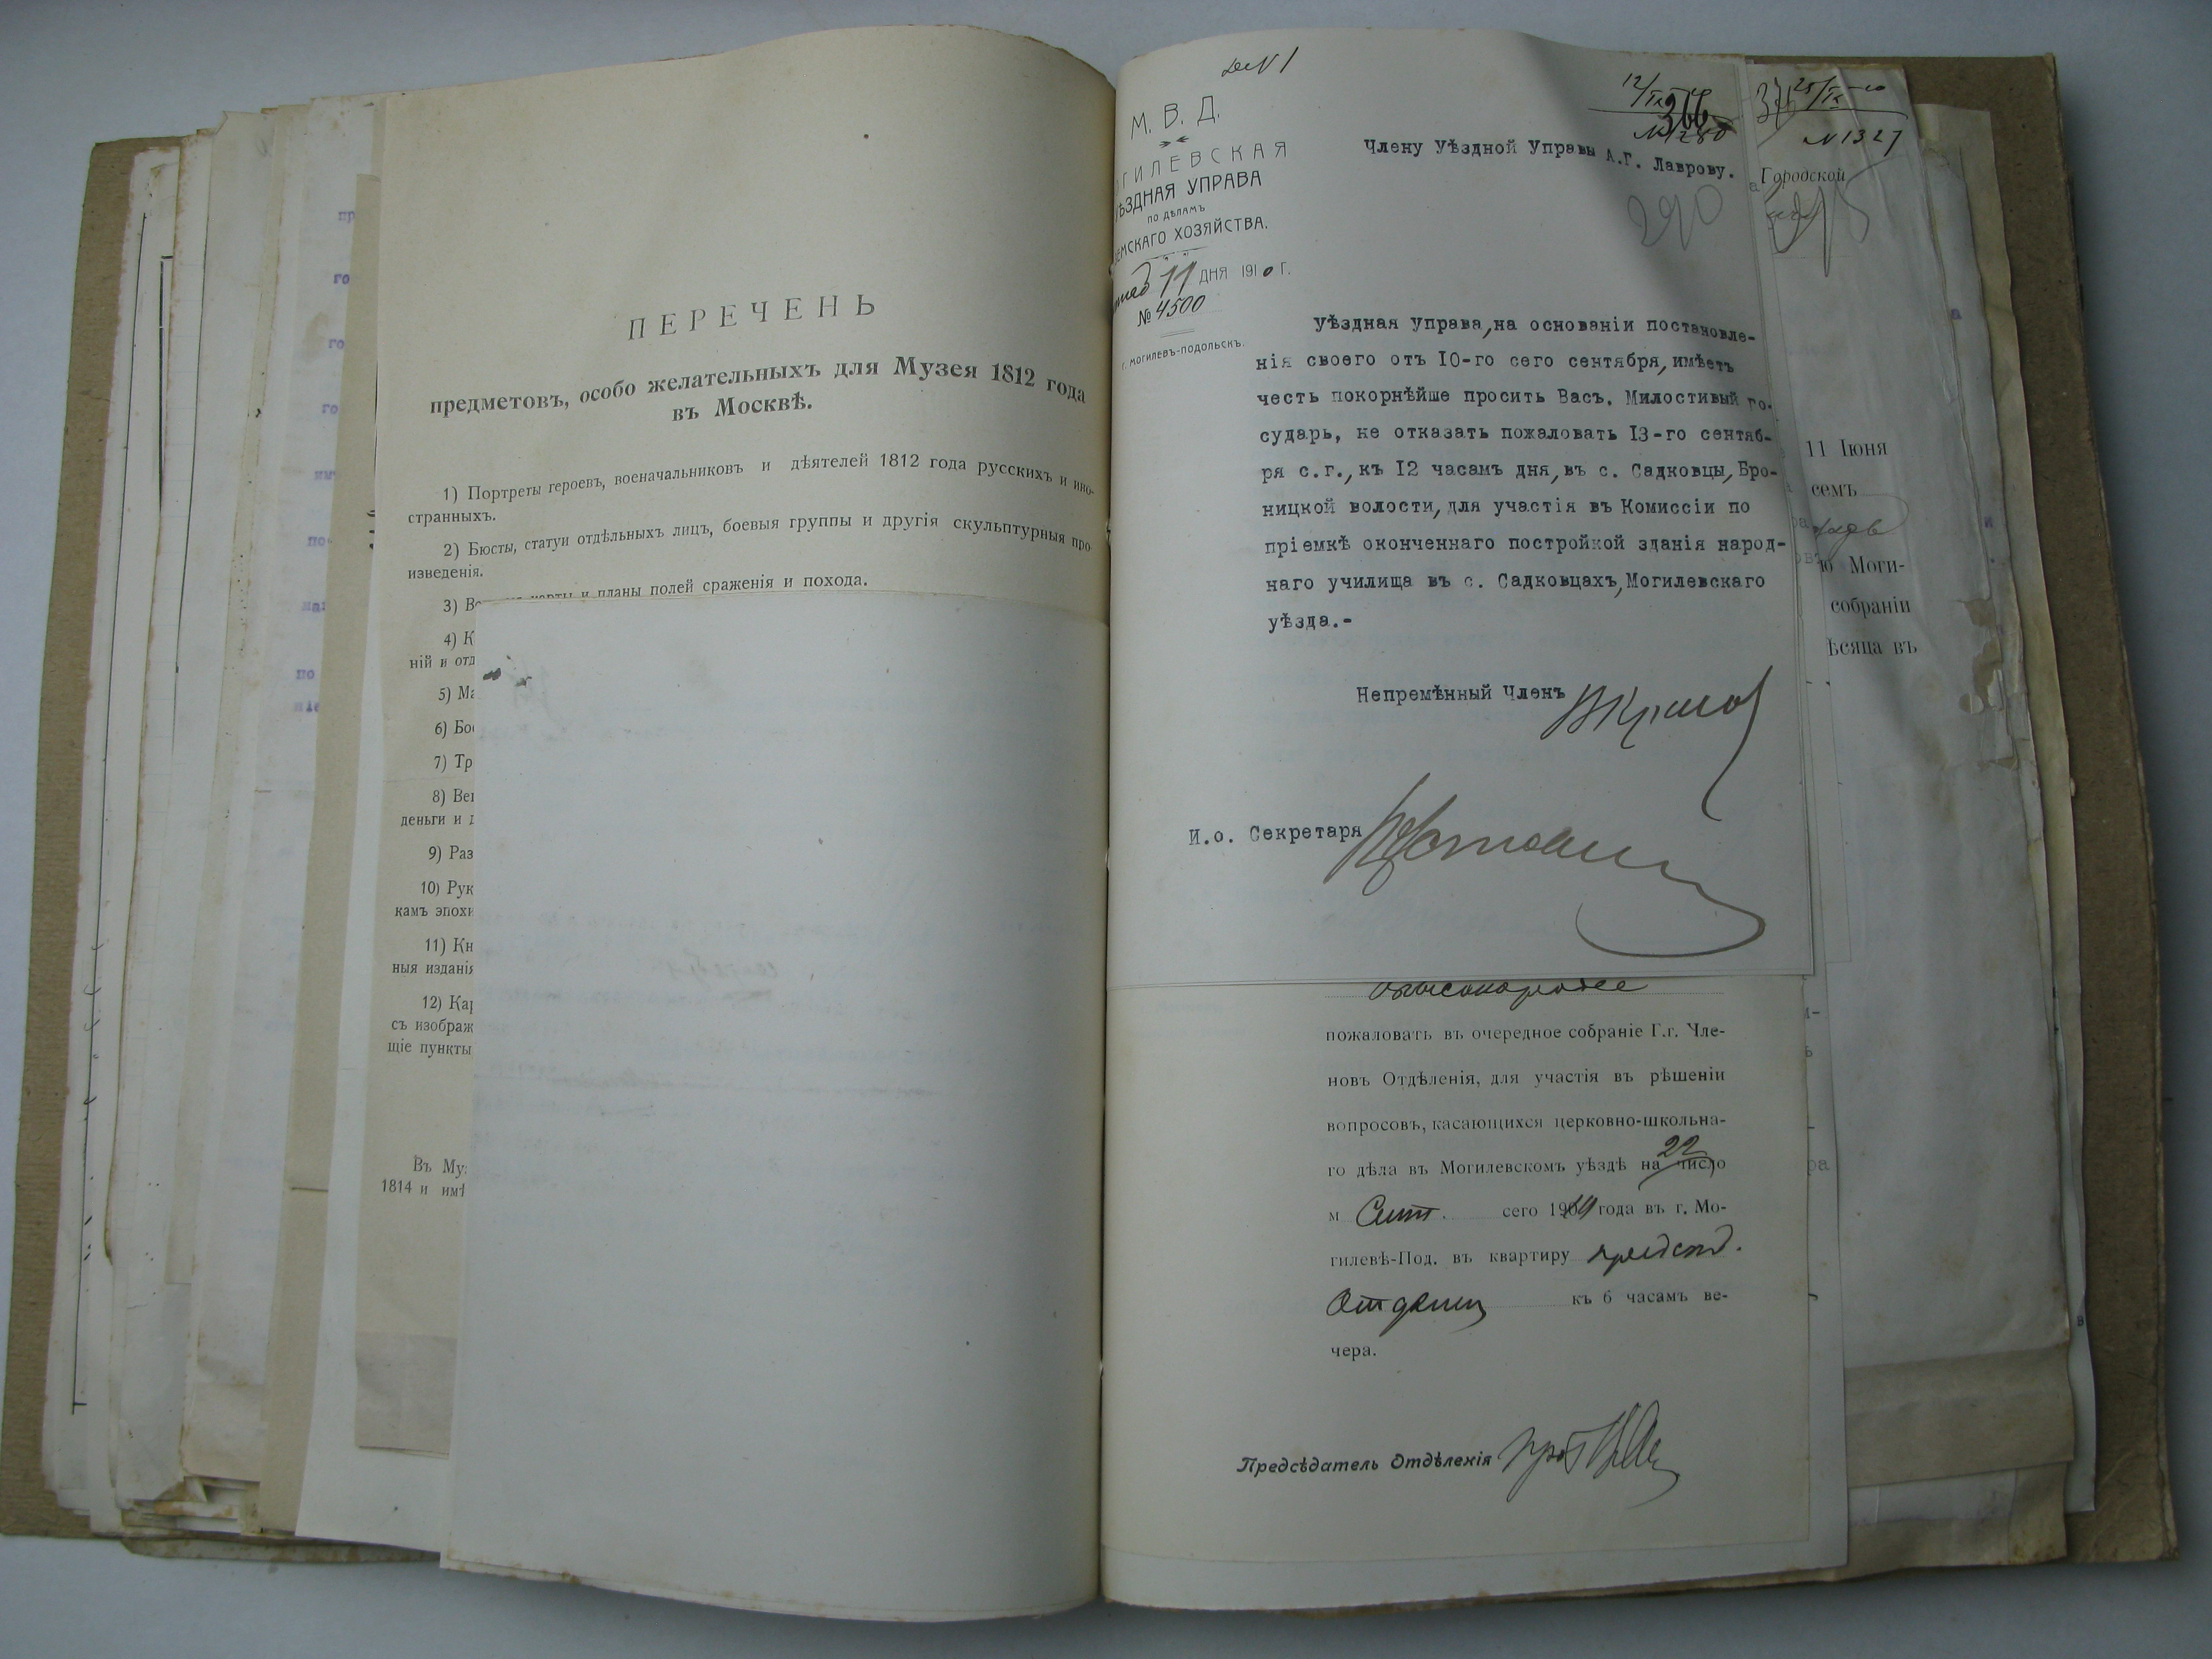 ПЕРЕЧЕНЬ
предметовъ, особо желательныхъ для Музея 1812 года
въ Москвѣ.
1) Портреты героевъ, военачальниковъ и дѣятелей 1812 года русскихъ и ино-
странныхъ.
2) Бюсты, статуи отдѣльныхъ лицъ, боевыя группы и другія скульптурныя про-
изведенія.
3) В карты и планы полей сраженія и похода.
4) К
ній и отд
5) Ма
6) Бо
7) Тр
8) Ве
деньги и д
9) Раз
10) Рук
камъ эпохи
11) Кн
ныя изданія
12) Кар
съ изображ
щіе пункты
Въ Му
1814 и имѣ
№ 1
М. В. Д.
ГИЛЕВСКАЯ
ѢЗДНАЯ УПРАВА
ПО ДѢЛАМЪ
ЕМСКАГО ХОЗЯЙСТВА.
11 ДНЯ 1910 Г.
№ 4500
Г. МОГИЛЕВЪ-ПОДОЛЬСКЪ.
12/IX
366
№ 1280
Члену Уѣздной Управы А.Г. Лаврову.
290
Уѣздная Управа, на основаніи постановле-
нія своего отъ 10-го сего сентября, имѣетъ
честь покорнѣйше просить Васъ, Милостивый Го-
сударь, не отказать пожаловать 13-го сентяб-
ря с.г., къ 12 часамъ дня, въ с. Садковцы, Бро-
ницкой волости, для участія въ Комиссіи по
пріемкѣ оконченнаго постройкой зданія народ-
наго училища въ с. Садковцахъ, Могилевскаго
уѣзда.-
Непремѣнный Членъ
И.о. Секретаря
пожаловать въ очередное собраніе Г.г. Чле-
новъ Отдѣленія, для участія въ рѣшеніи
вопросовъ, касающихся церковно-школьна-
го дѣла въ Могилевскомъ уѣздѣ на 22 число
м Сент. сего 1910 года въ г. Мо-
гилевѣ-Под. въ квартиру предсѣд.
Отдѣлен къ 6 часамъ ве-
чера.
Предсѣдатель Отдѣленія
25/IX-10
№ 1327
Городской
11 Іюня
семъ
Моги-
собраніи
ѣсяца въ